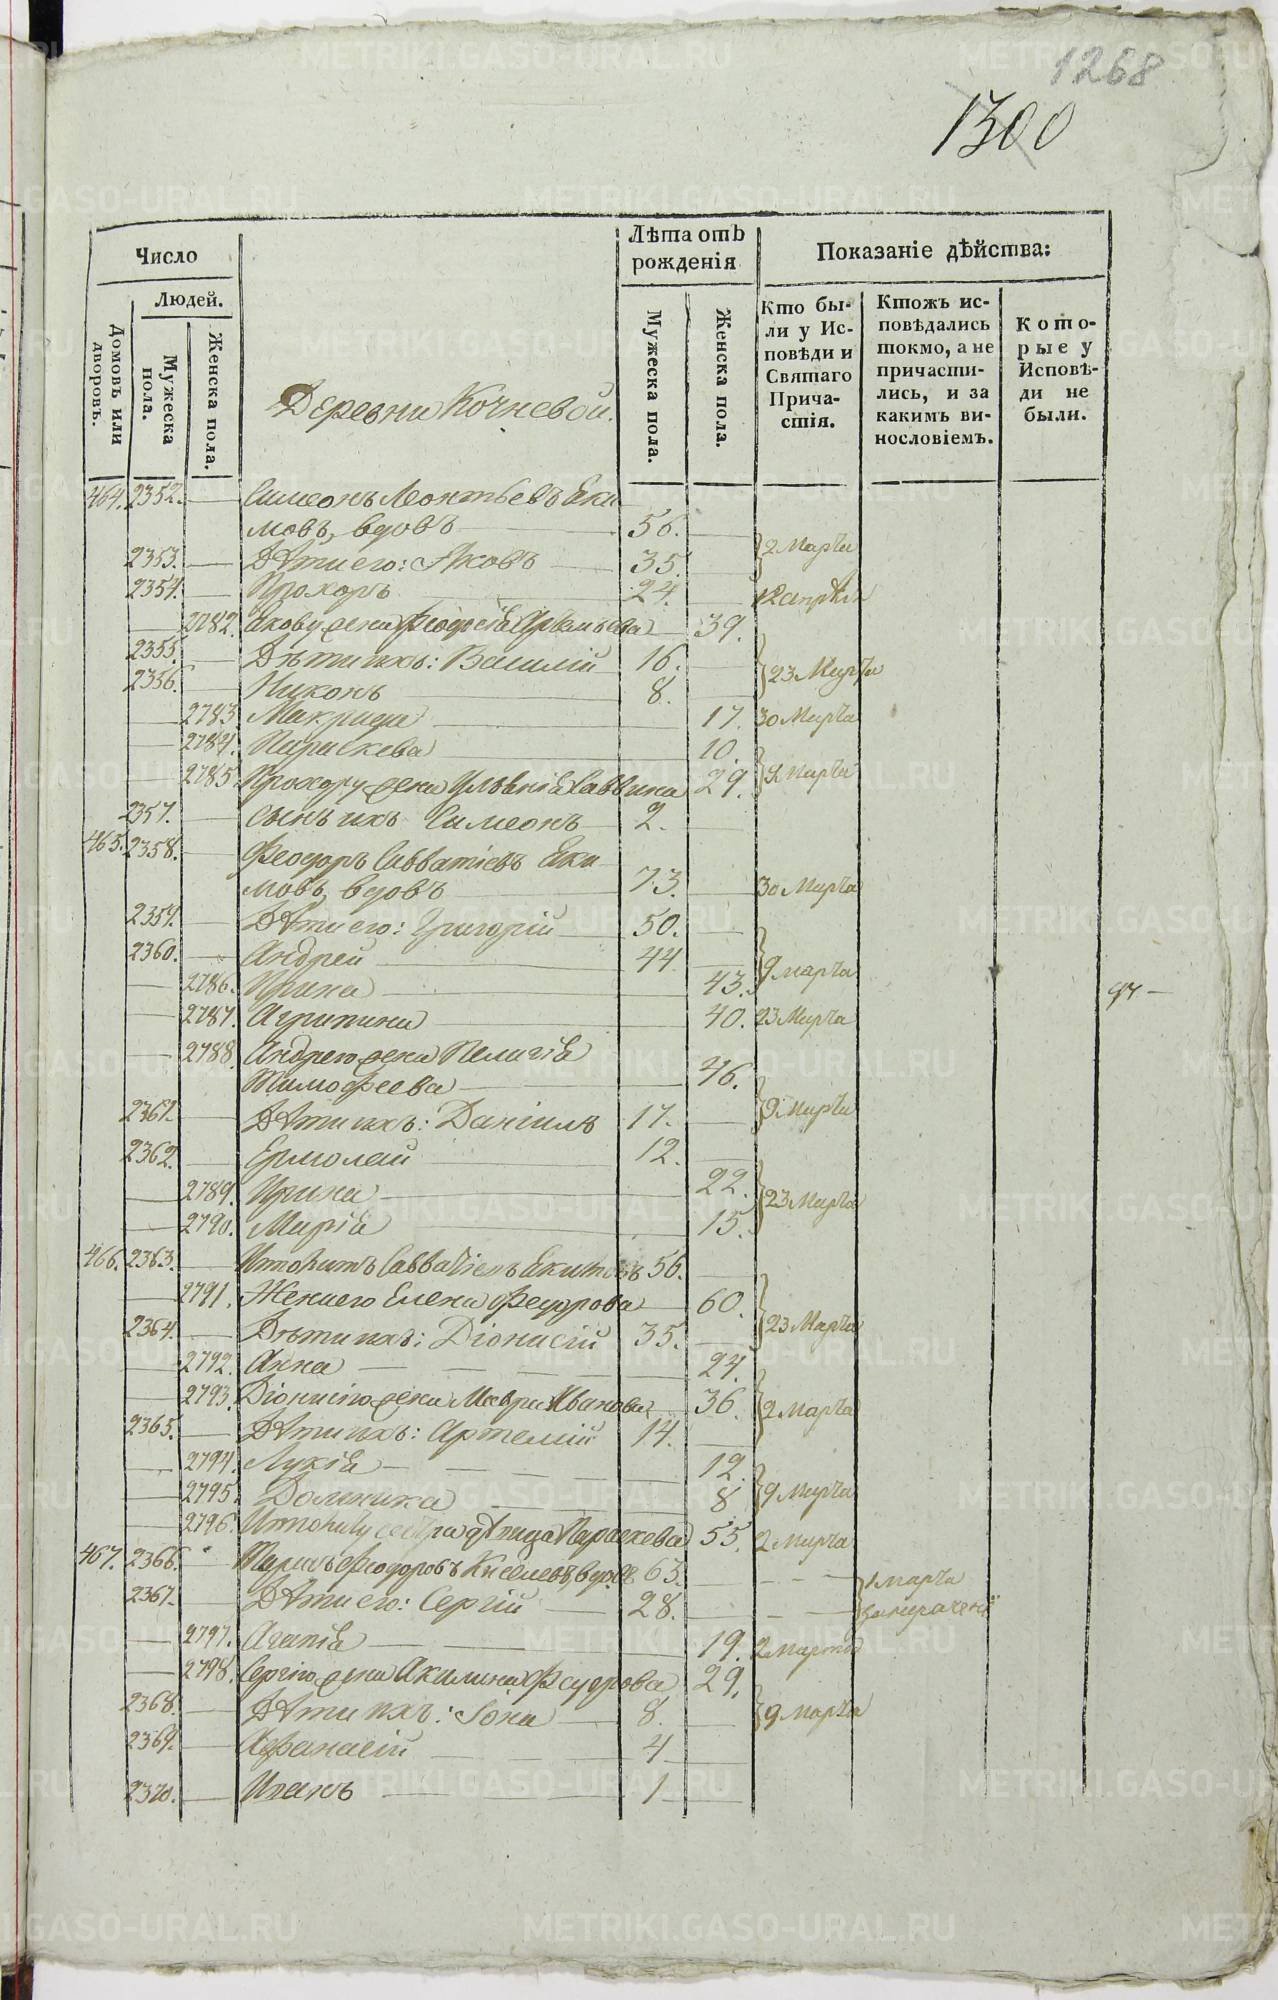 1268
1300
Число
Людей.
Домовъ или дворовъ.
Мужеска пола.
Женска пола.
Лѣта отъ рожденія
Мужеска пола.
Женска пола.
Показаніе дѣйства:
Кто бы-
ли у Ис-
повѣди и
Святаго
Прича-
стія.
Ктожъ ис-
повѣдались
токмо, а не
причасти-
лись, и за
какимъ ви-
нословіемъ.
Кото-
рые у
Исповѣ-
ди не
были.
Деревни Кочневой.
464. 2352. Симеонъ Леонтьевъ Еки
мовъ, вдовъ 56.
2 Марта
2353. Дѣти его: Яковъ 35.
2354. Прохоръ 24. 12 апрѣля
2782. Якову жена Феодосія 39.
2355. Дѣти ихъ: Василій 16.
23 Марта
2356. Никонъ 8.
2783 Макрида 17. 30 Марта
2784. Параскева 10.
2785. Прохору жена Ульянія Саввина 29. Марта
2357. Сынъ ихъ Симеонъ 2.
465. 2358. Феодоръ Савватіевъ Еки
мовъ, вдовъ 73. 30 Марта
2359. Дѣти его: Григорій 50.
2360. Андрей 44
9 марта
2786. Ирина 43.
2787. Агрипина 40. 23 Марта
2788 Андрею жена Пелагія
Тимофеева 46.
9 Марта
2361. Дѣти ихъ: Даніилъ 17.
2362. Ермолай 12.
2789. Ирина 22.
23 Марта
2790. Марія 15.
466. 2363. Савватіевъ Екимовъ 56.
2791. Жена его Елена Федорова 60.
23 Марта
2364. Дѣти ихъ: Діонисій 35.
2792. Анна 24.
2793. Діонисію жена Мавра Иванова 36.
2 Марта
2365. Дѣти ихъ: Артемій 14.
2794. Лукія 12.
9 Марта
2795. Домника 8
2796. сестра дѣвица Параскева 55. 2 Марта
467. 2366. Феодоровъ Киселевъ, вдовъ 63.
1 марта
2367. Дѣти его: Сергій 28.
2797. Агапія 19. 2 Марта
2798. Сергію жена Акилина Феодорова 29.
2368. Дѣти ихъ: Іона 8.
9 Марта
2369. Афанасій 4
2370. Иванъ 1
METRIKI.GASO-URAL.RU